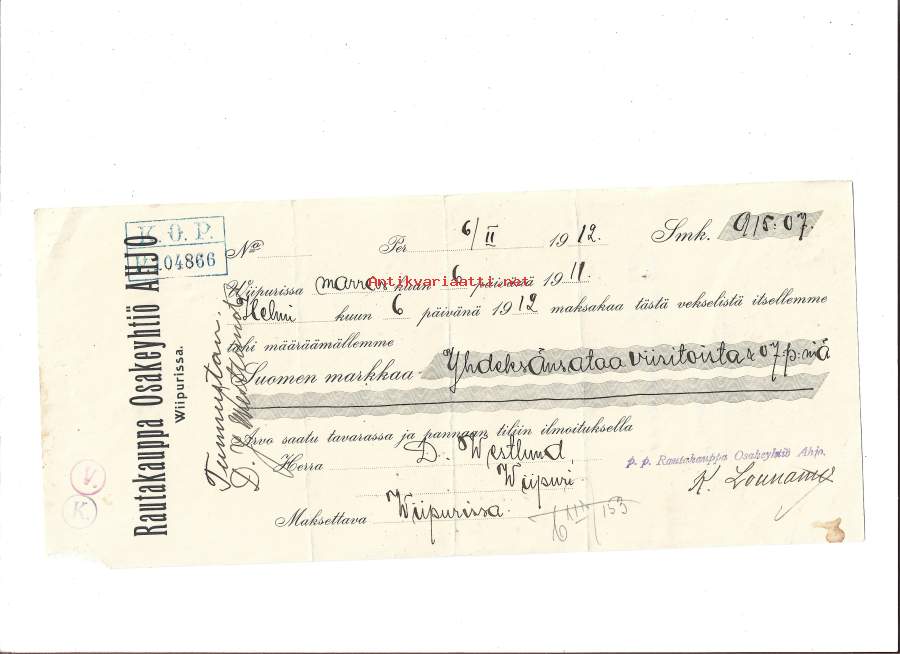 Rautakauppa Osakeyhtiö AHJO
Wiipurissa.
K. O. P.
04866
Tunnustan.
D. Westlund
No Per 6/II 1912. Smk. 915:07.
Wiipurissa marras kuun 6 päivänä 1911.
Helmi kuun 6 päivänä 1912 maksakaa tästä vekselistä itsellemme
tahi määräämällemme
Suomen markkaa Yhdeksänsataa viisitoista & 07 p:niä
Arvo saatu tavarassa ja pannaan tiliin ilmoituksella
Herra D. Westlund
Wiipuri
Maksettava Wiipurissa.
p. p. Rautakauppa Osakeyhtiö Ahjo.
K. Lounamo
V.
K.
Antikvariaatti.net